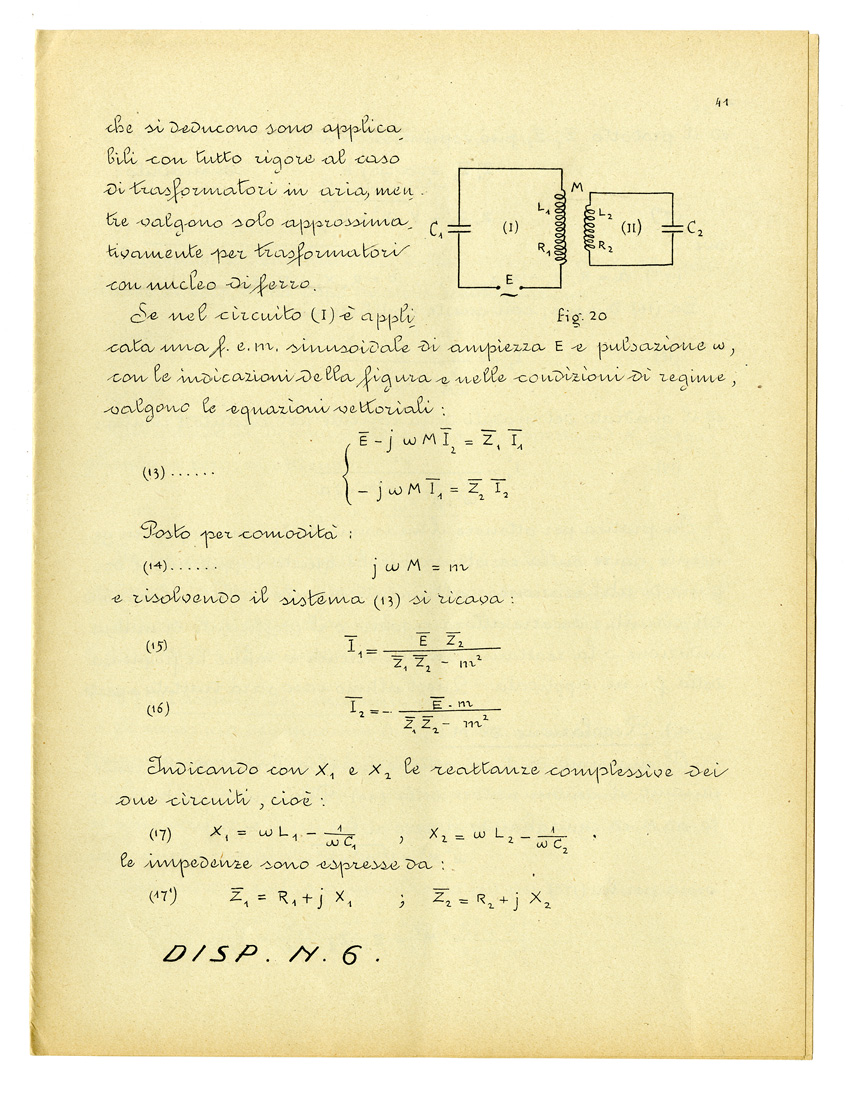 41
che si deducono sono applica_
bili con tutto rigore al caso
di trasformatori in aria, men_
tre valgono solo approssima_
tivamente per trasformatori
con nucleo di ferro.
M
L₁
R₁
L₂
R₂
C₁
(I)
(II)
C₂
E
~
fig. 20
Se nel circuito (I) è appli_
cata una f. e. m. sinusoidale di ampiezza E e pulsazione ω,
con le indicazioni della figura e nelle condizioni di regime,
valgono le equazioni vettoriali :
(13) ...... { E̅ - j ω M I̅₂ = Z̅₁ I̅₁
- j ω M I̅₁ = Z̅₂ I̅₂
Posto per comodità :
(14) ...... j ω M = m
e risolvendo il sistema (13) si ricava :
(15) I̅₁ = E̅ Z̅₂ / Z̅₁ Z̅₂ - m²
(16) I̅₂ = - E̅ . m / Z̅₁ Z̅₂ - m²
Indicando con X₁ e X₂ le reattanze complessive dei
due circuiti, cioè :
(17) X₁ = ω L₁ - 1/ω C₁ , X₂ = ω L₂ - 1/ω C₂ .
le impedenze sono espresse da :
(17') Z̅₁ = R₁ + j X₁ ; Z̅₂ = R₂ + j X₂
DISP. N. 6.